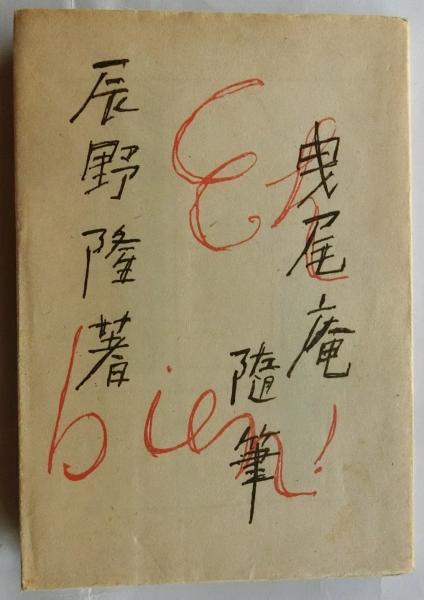 曳尾庵
隨筆
辰野隆著
Eh
bien!